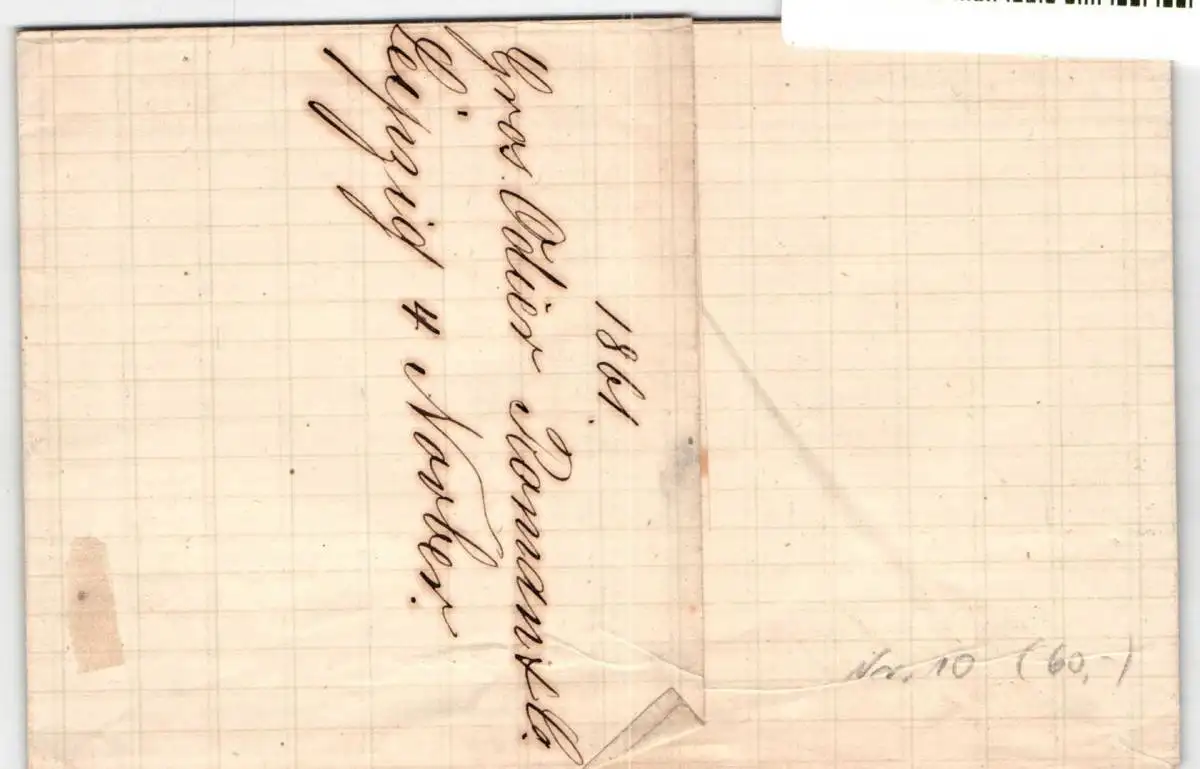 1861.
Gros. Odier Romans & C.
Leipzig 4 Novber.
Nr. 10 (60,-)